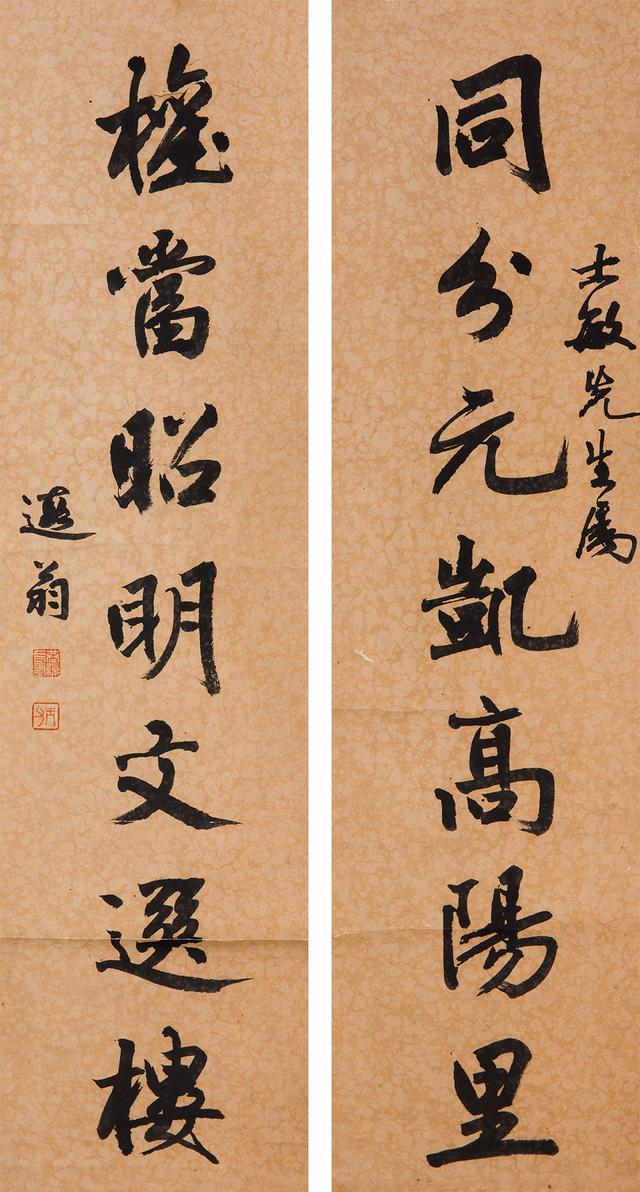 士敏先生屬
同分元凱高陽里
權當昭明文選樓
遐翁